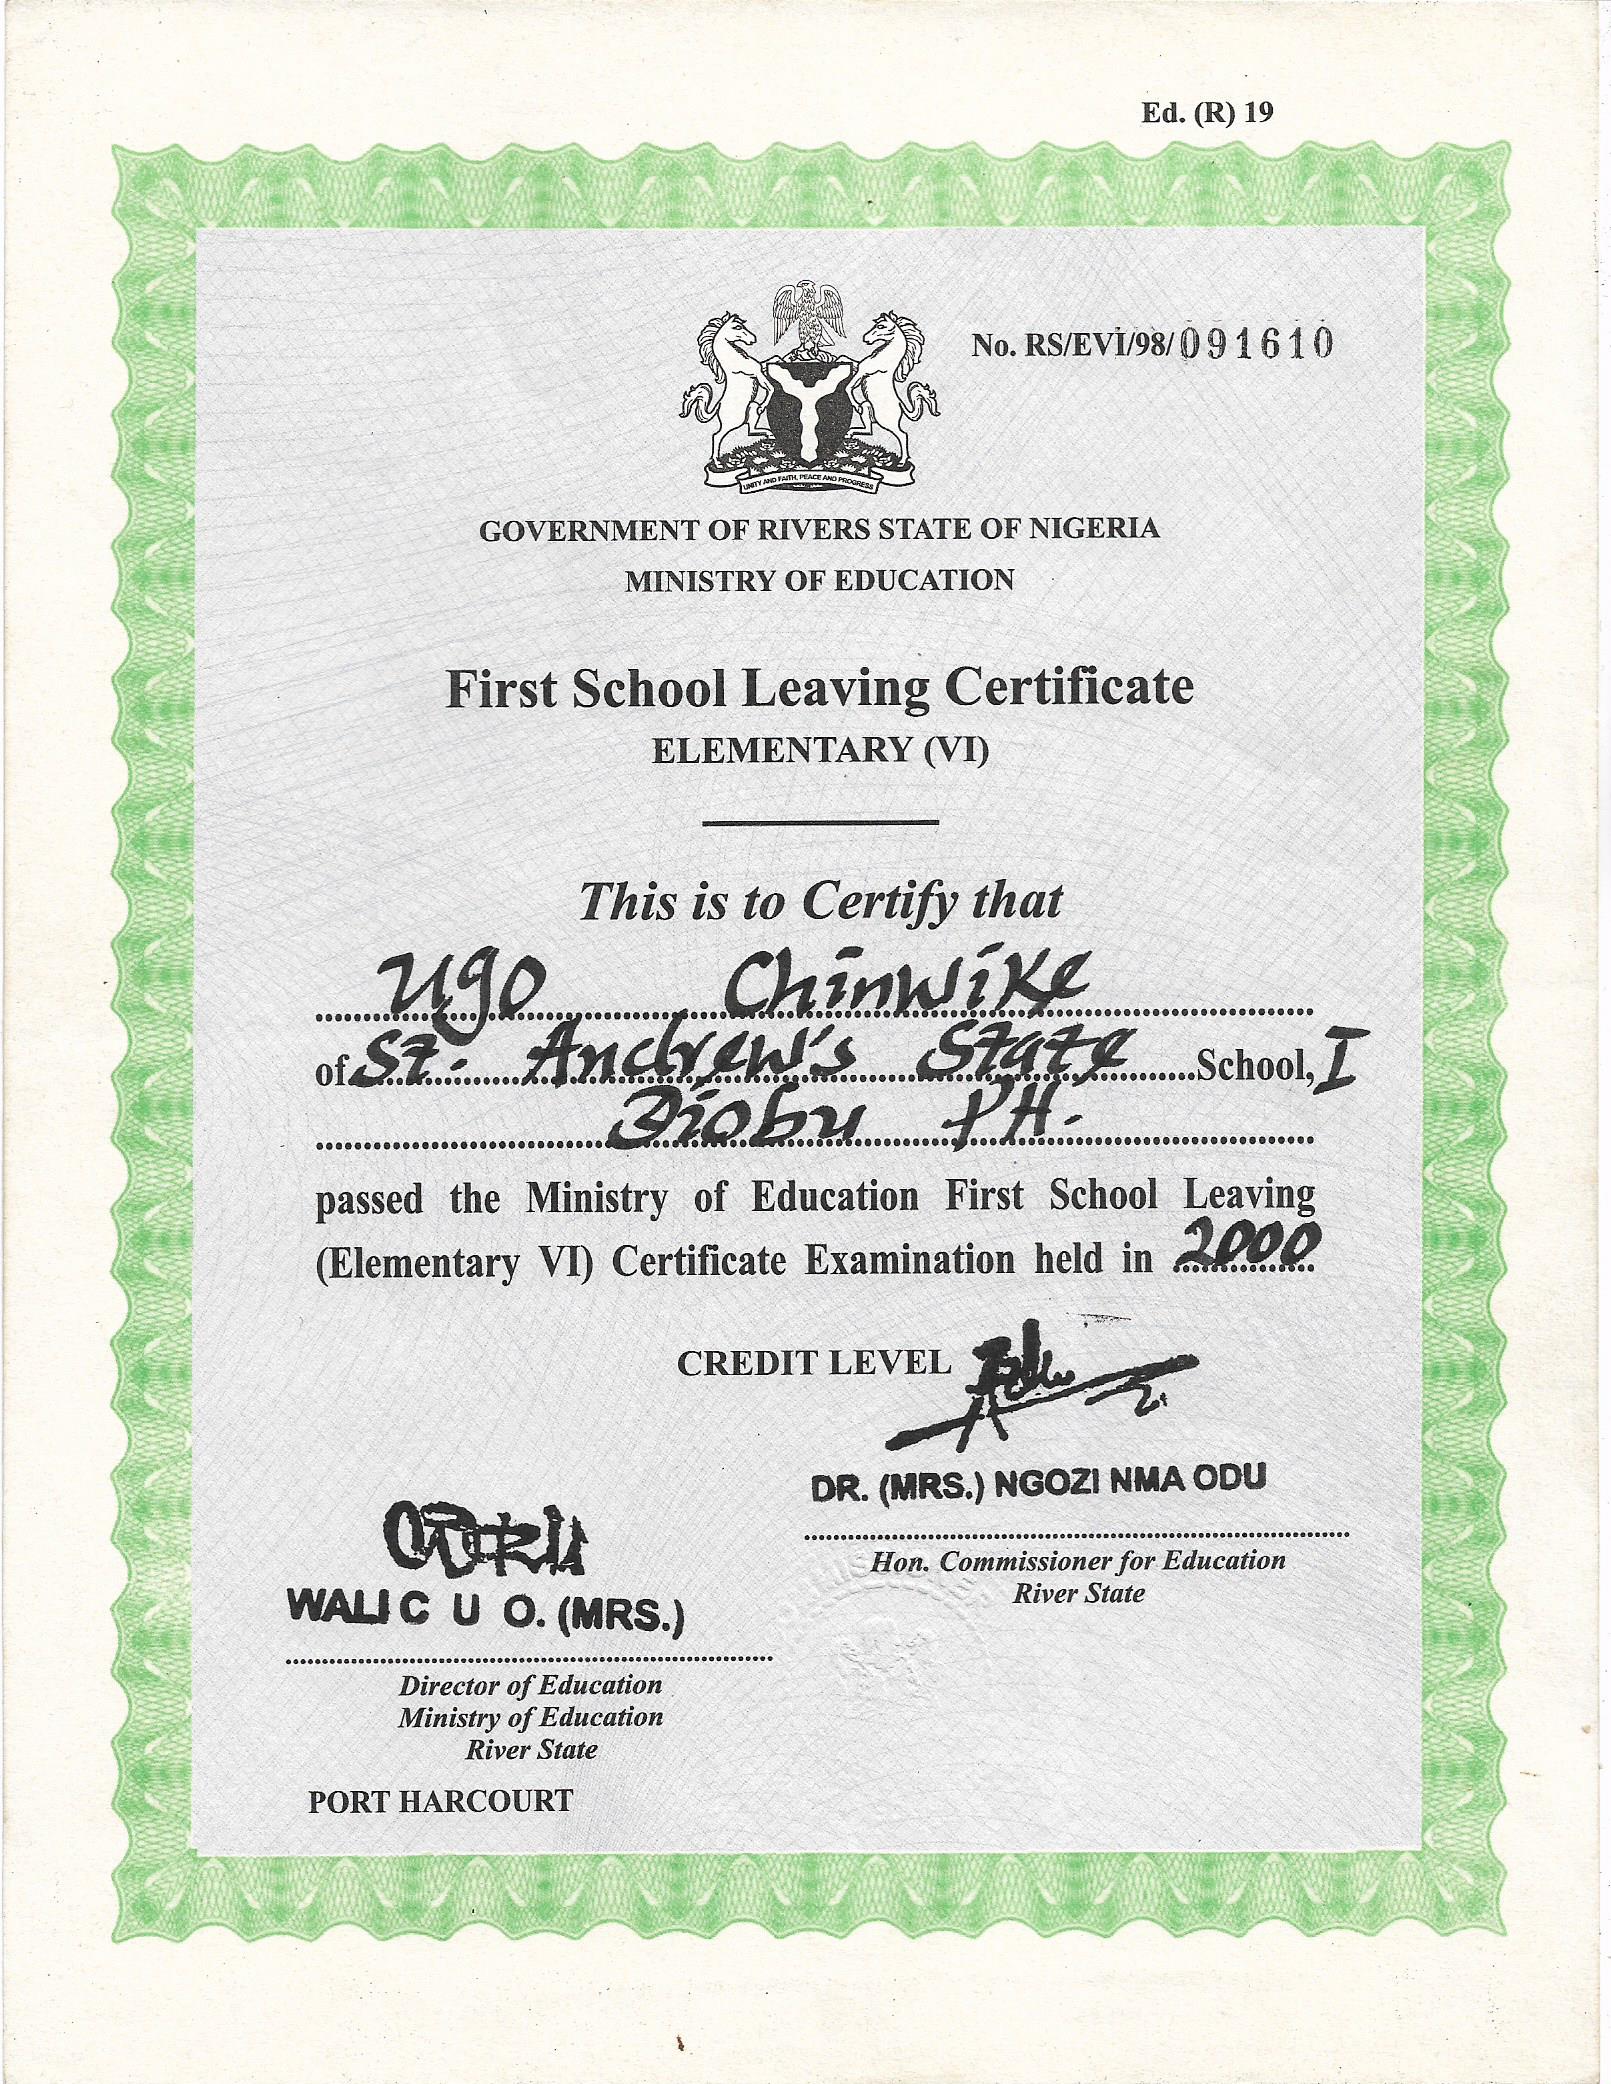 Ed. (R) 19
No. RS/EVI/98/091610
UNITY AND FAITH, PEACE AND PROGRESS
GOVERNMENT OF RIVERS STATE OF NIGERIA
MINISTRY OF EDUCATION
First School Leaving Certificate
ELEMENTARY (VI)
This is to Certify that
Ugo Chinwike
of St. Andrew's State School, I
Diobu PH.
passed the Ministry of Education First School Leaving
(Elementary VI) Certificate Examination held in 2000
CREDIT LEVEL
DR. (MRS.) NGOZI NMA ODU
Hon. Commissioner for Education
River State
WALI C U O. (MRS.)
Director of Education
Ministry of Education
River State
PORT HARCOURT